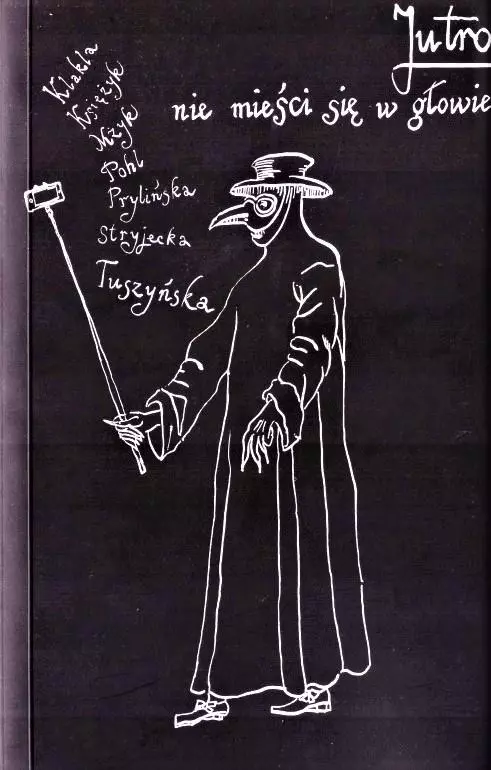 Jutro
nie mieści się w głowie
Klakla
Księżyk
Wężyk
Pohl
Prylińska
Stryjecka
Tuszyńska